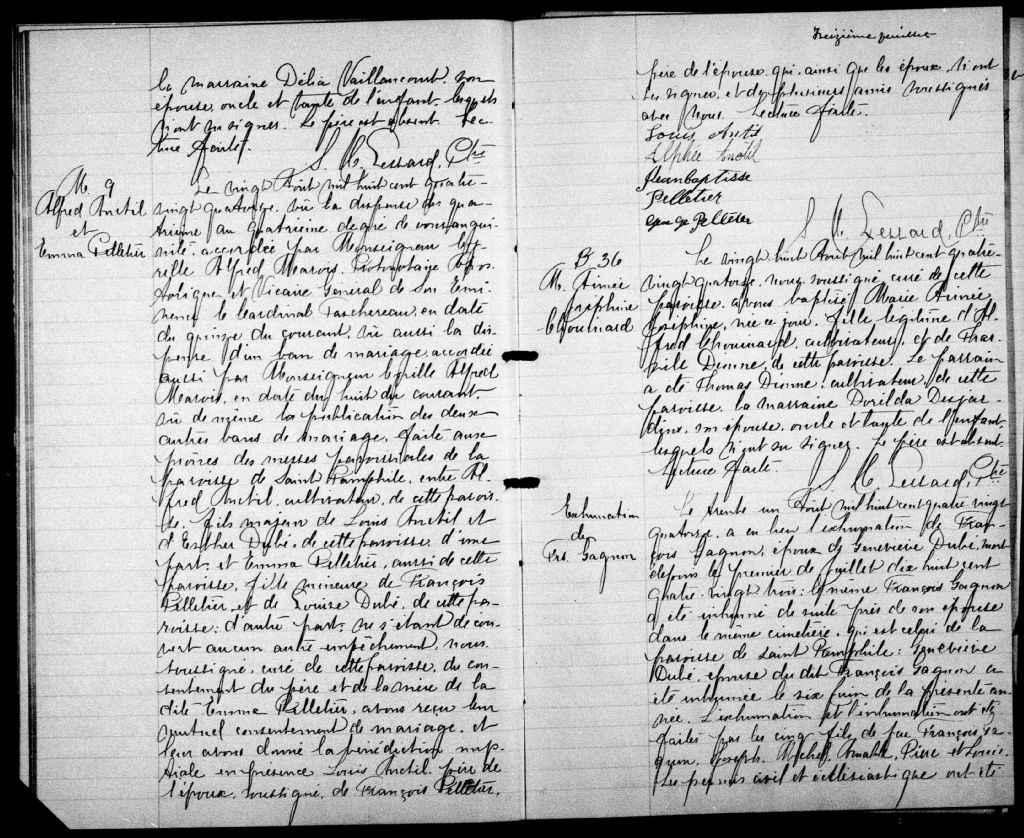 la marraine Délia Vaillancourt, son
épouse, oncle et tante de l'enfant lesquels
n'ont su signer. Le père est absent. Lec-
ture faite.
S. C. Lessard, Ptre
M. 9
Alfred Anctil
et
Emma Pelletier
Le vingt Août mil huit cent quatre-
vingt quatorze, vu la dispense du qua-
trième au quatrième degré de consangui-
nité, accordée par Monseigneur Cy-
rille Alfred Marois, Protonotaire Apos-
tolique et Vicaire Général de Son Emi-
nence le Cardinal Taschereau, en date
du quinze du courant, vu aussi la dis-
pense d'un ban de mariage, accordée
aussi par Monseigneur Cyrille Alfred
Marois, en date du huit du courant,
vu de même la publication des deux
autres bans de mariage, faite aux
prônes des messes paroissiales de la
paroisse de Saint Pamphile, entre Al-
fred Anctil, cultivateur, de cette parois-
se, fils majeur de Louis Anctil et
d'Esther Dubé, de cette paroisse, d'une
part, et Emma Pelletier, aussi de cette
paroisse, fille mineure de François
Pelletier et de Louise Dubé, de cette pa-
roisse; d'autre part, ne s'étant décou-
vert aucun autre empêchement, nous
soussigné, curé de cette paroisse, du con-
sentement du père et de la mère de la
dite Emma Pelletier, avons reçu leur
mutuel consentement de mariage, et
leur avons donné la bénédiction nup-
tiale en présence Louis Anctil, père de
l'époux, soussigné, de François Pelletier,
Treizième feuillet
père de l'épouse, qui, ainsi que les époux, n'ont
su signer, et de plusieurs amis soussignés
avec Nous. Lecture faite.
Louis Anctil
Alphée Anctil
Jean baptisse
Pelletier
George Pelletier
S. C. Lessard, Ptre
B 36
M. Aimée
Joséphine
Chouinard
Le vingt huit Août mil huit cent quatre-
vingt quatorze, nous, soussigné, curé de cette
paroisse, avons baptisé Marie Aimée
Joséphine, née ce jour, fille légitime d'Al-
fred Chouinard, cultivateur, et de
Dionne, de cette paroisse. Le parrain
a été Thomas Dionne, cultivateur, de cette
paroisse, la marraine Dorilda Desjar-
dins, son épouse, oncle et tante de l'enfant,
lesquels n'ont su signer. Le père est absent.
Lecture faite.
S. C. Lessard, Ptre
Exhumation
de
Frs. Gagnon
Le trente un Août mil huit cent quatre vingt
quatorze, a eu lieu l'exhumation de Fran-
çois Gagnon, époux de Geneviève Dubé, mort
depuis le premier de juillet dix huit cent
quatre-vingt trois; le même François Gagnon
a été inhumé de suite près de son épouse
dans le même cimetière, qui est celui de la
paroisse de Saint Pamphile; Geneviève
Dubé, épouse du dit François Gagnon a
été inhumée le six Juin de la présente an-
née. L'exhumation et l'inhumation ont été
faites par les cinq fils de feu François Ga-
gnon, Joseph, Michel, Amable, Pierre et Louis.
Les permis civil et ecclésiastique ont été